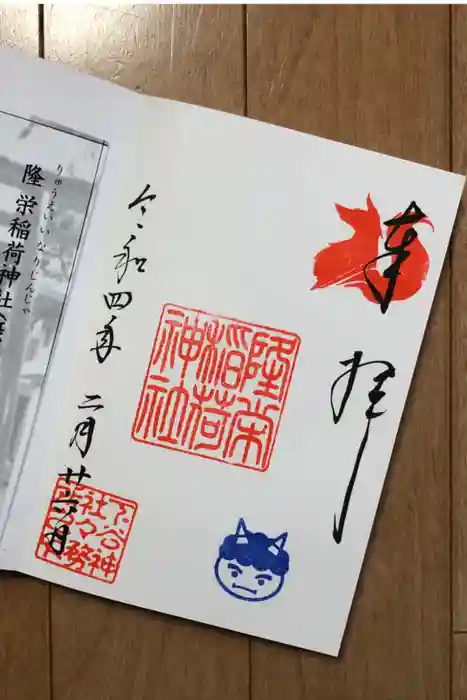 奉拝
隆栄
稲荷
神社
令和四年 二月廿六日
下谷神
社々務
りゅうえいいなりじんじゃ
隆栄稲荷神社